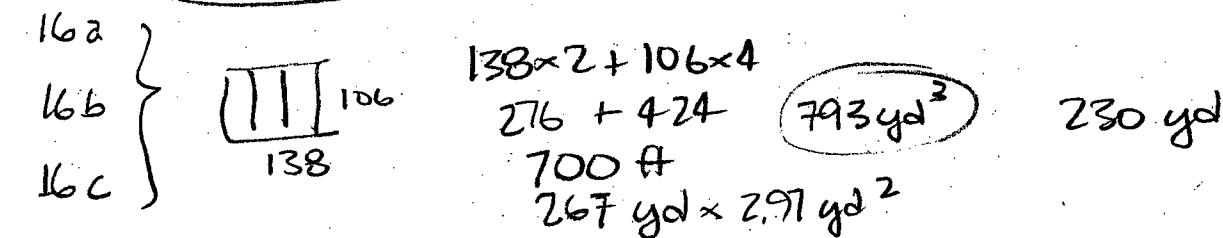 16a
16b
16c
106
138
138×2 + 106×4
276 + 424
700 ft
267 yd × 2.97 yd²
793 yd³
230 yd